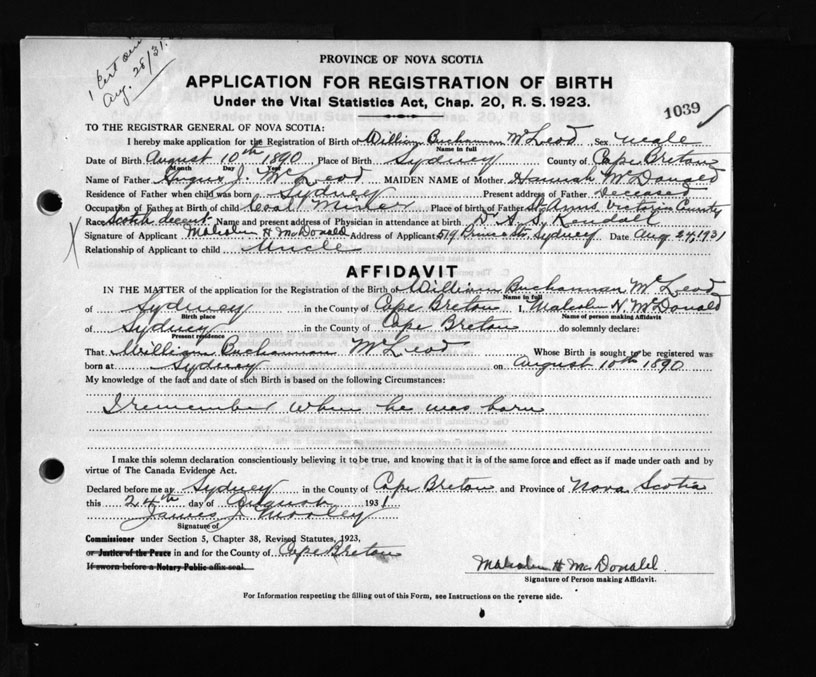 1 Cert
Aug. 28/31.
PROVINCE OF NOVA SCOTIA
APPLICATION FOR REGISTRATION OF BIRTH
Under the Vital Statistics Act, Chap. 20, R. S. 1923.
1039
TO THE REGISTRAR GENERAL OF NOVA SCOTIA:
I hereby make application for the Registration of Birth of William Buchannan McLeod Sex male
Name in full
Date of Birth August 10th 1890 Place of Birth Sydney County of Cape Breton
Month Day Year
Name of Father Angus J. McLeod MAIDEN NAME of Mother Hannah McDonald
Residence of Father when child was born Sydney Present address of Father deceased
Occupation of Father at Birth of child Coal Miner Place of Birth of Father St Anns Victoria County
Race Scotch decent Name and present address of Physician in attendance at birth Dr A. Kendall
Signature of Applicant Malcolm H McDonald Address of Applicant 519 Prince St. Sydney Date Aug 24, 1931
Relationship of Applicant to child Uncle
AFFIDAVIT
IN THE MATTER of the application for the Registration of the Birth of William Buchannan McLeod
Name in full
of Sydney in the County of Cape Breton I, Malcolm H. McDonald
Birth place Name of person making Affidavit
of Sydney in the County of Cape Breton do solemnly declare:
Present residence
That William Buchannan McLeod Whose Birth is sought to be registered was
born at Sydney on August 10th 1890
My knowledge of the fact and date of such Birth is based on the following Circumstances:
I remember when he was born
I make this solemn declaration conscientiously believing it to be true, and knowing that it is of the same force and effect as if made under oath and by
virtue of The Canada Evidence Act.
Declared before me at Sydney in the County of Cape Breton and Province of Nova Scotia
this 24th day of August 1931
James J
Signature of
Commissioner under Section 5, Chapter 38, Revised Statutes, 1923,
or Justice of the Peace in and for the County of Cape Breton
If sworn before a Notary Public affix seal.
Malcolm H McDonald.
Signature of Person making Affidavit.
For Information respecting the filling out of this Form, see Instructions on the reverse side.